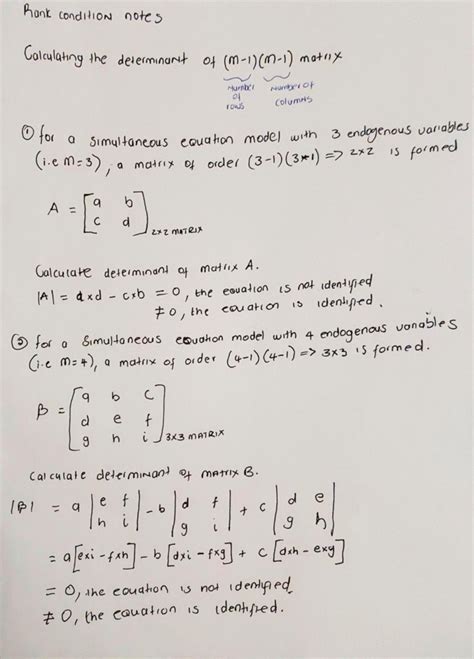 Rank condition notes
Calculating the determinant of (M-1)(M-1) matrix
Number of rows
Number of columns
① for a simultaneous equation model with 3 endogenous variables
(i.e M=3), a matrix of order (3-1)(3-1) => 2x2 is formed
A = [a b
c d] 2x2 MATRIX
Calculate determinant of matrix A.
|A| = axd - cxb = 0, the equation is not identified
≠ 0, the equation is identified.
② for a simultaneous equation model with 4 endogenous variables
(i.e M=4), a matrix of order (4-1)(4-1) => 3x3 is formed.
B = [a b c
d e f
g h i] 3x3 MATRIX
Calculate determinant of MATRIX B.
|B| = a |e f| - b |d f| + c |d e|
|h i| |g i| |g h|
= a[exi - fxh] - b[dxi - fxg] + c[dxh - exg]
= 0, the equation is not identified
≠ 0, the equation is identified.